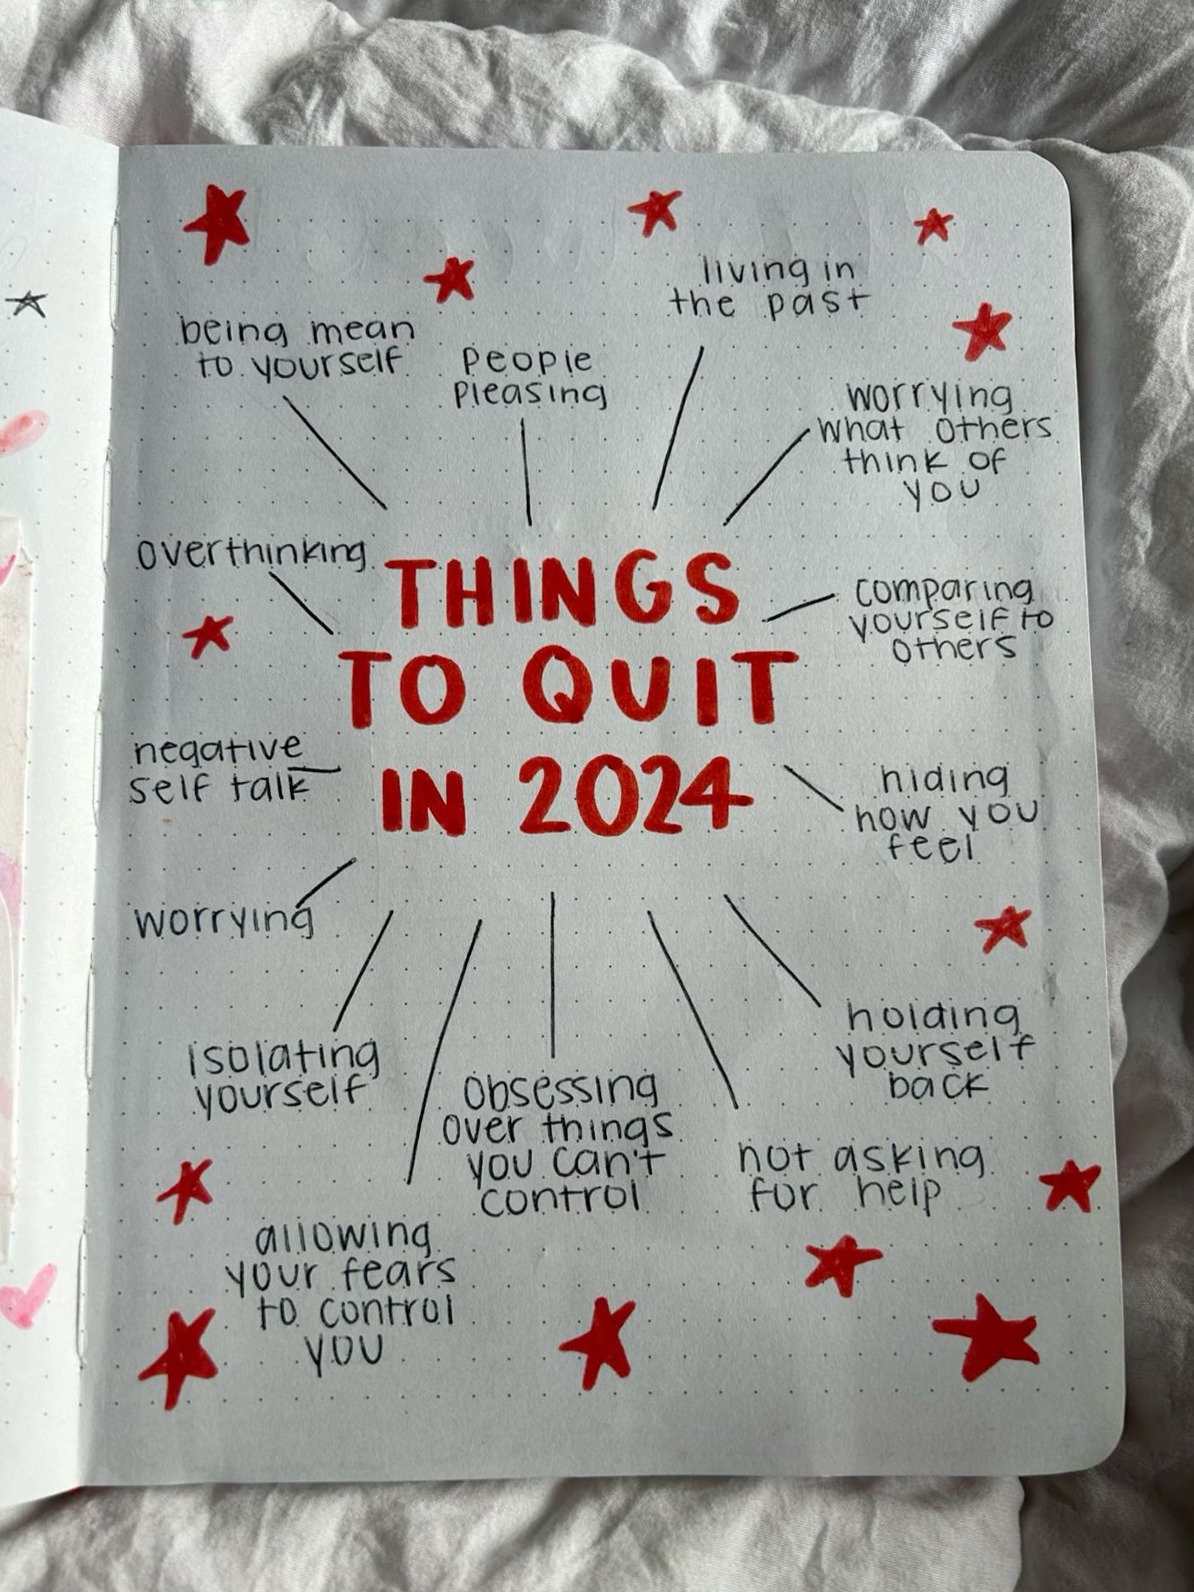 living in
the past
being mean
to yourself
People
Pleasing
worrying
what others
think of
you
overthinking
THINGS
TO QUIT
IN 2024
comparing
yourself to
others
negative
self talk
hiding
how you
feel
worrying
holding
yourself
back
isolating
yourself
obsessing
over things
you can't
control
not asking
for help
allowing
your fears
to control
you